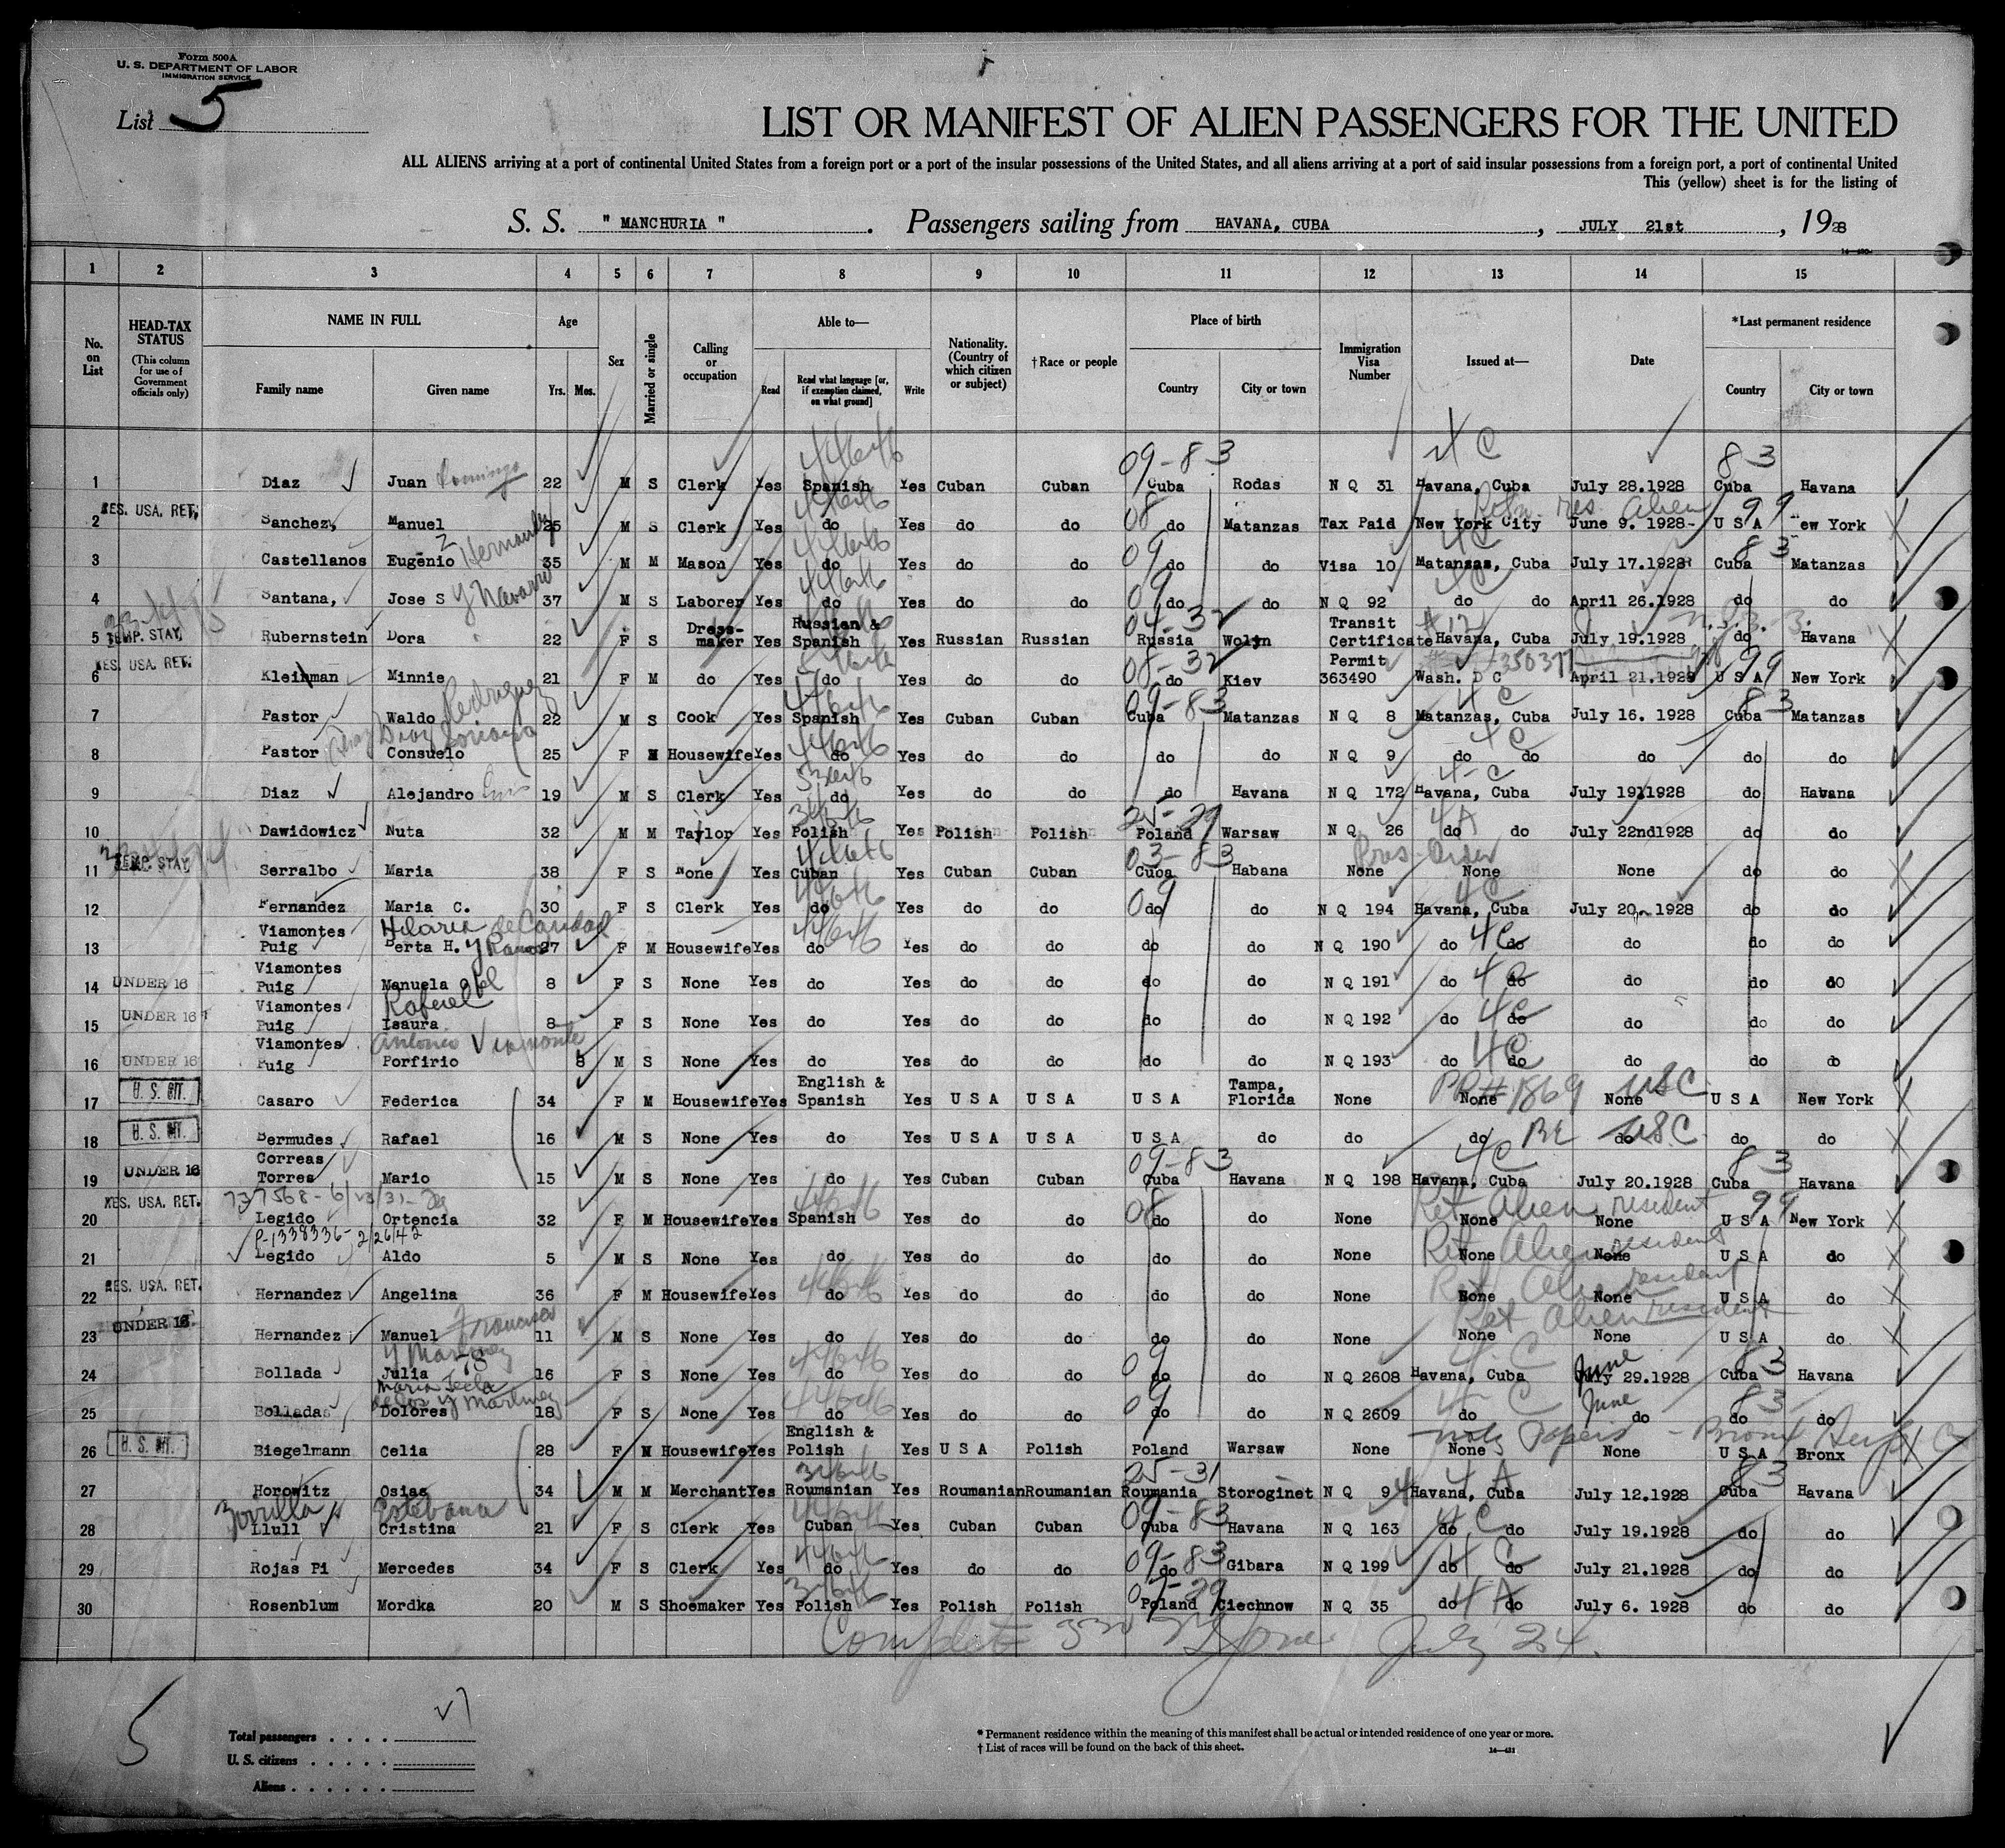 Form 500A
U. S. DEPARTMENT OF LABOR
IMMIGRATION SERVICE
List 5
LIST OR MANIFEST OF ALIEN PASSENGERS FOR THE UNITED
ALL ALIENS arriving at a port of continental United States from a foreign port or a port of the insular possessions of the United States, and all aliens arriving at a port of said insular possessions from a foreign port, a port of continental United
This (yellow) sheet is for the listing of
S. S. " MANCHURIA " . Passengers sailing from HAVANA, CUBA , JULY 21st , 1928
1 2 3 4 5 6 7 8 9 10 11 12 13 14 15
No. on List HEAD-TAX STATUS (This column for use of Government officials only) NAME IN FULL Family name Given name Age Yrs. Mos. Sex Married or single Calling or occupation Able to— Read Read what language [or, if exemption claimed, on what ground] Write Nationality. (Country of which citizen or subject) †Race or people Place of birth Country City or town Immigration Visa Number Issued at— Date *Last permanent residence Country City or town
09-83 4C 83
1 Diaz Juan Domingo 22 M S Clerk Yes Spanish Yes Cuban Cuban Cuba Rodas N Q 31 Havana, Cuba July 28.1928 Cuba Havana
RES. USA. RET. 08 res. Alien 99
2 Sanchez, Manuel 25 M S Clerk Yes do Yes do do do Matanzas Tax Paid New York City June 9. 1928- U S A ew York
Hernandez 09 4C 83
3 Castellanos Eugenio 35 M M Mason Yes do Yes do do do do Visa 10 Matanzas, Cuba July 17.1928 Cuba Matanzas
09 4C
4 Santana, Jose S y Navarro 37 M S Laborer Yes do Yes do do do do N Q 92 do do April 26.1928 do do
TEMP. STAY, 04-32
5 Rubernstein Dora 22 F S Dress-maker Yes Russian & Spanish Yes Russian Russian Russia Wolyn Transit Certificate Havana, Cuba July 19.1928 do Havana
RES. USA. RET. 08-32 350377 99
6 Kleinman Minnie 21 F M do Yes do Yes do do do Kiev Permit 363490 Wash. D C April 21.1928 U S A New York
Rodriguez 09-83 4C 83
7 Pastor Waldo 22 M S Cook Yes Spanish Yes Cuban Cuban Cuba Matanzas N Q 8 Matanzas, Cuba July 16. 1928 Cuba Matanzas
Diaz Soriano 4C
8 Pastor Consuelo 25 F M Housewife Yes do Yes do do do do N Q 9 do do do do do
4-C
9 Diaz Alejandro 19 M S Clerk Yes do Yes do do do Havana N Q 172 Havana, Cuba July 19.1928 do Havana
25-29 4A
10 Dawidowicz Nuta 32 M M Taylor Yes Polish Yes Polish Polish Poland Warsaw N Q 26 do do July 22nd1928 do do
TEMP. STAY, 03-83
11 Serralbo Maria 38 F S None Yes Cuban Yes Cuban Cuban Cuba Habana None None None do do
09 4C
12 Fernandez Maria C. 30 F S Clerk Yes do Yes do do do do N Q 194 Havana, Cuba July 20. 1928 do do
Hilaria de Caridad
13 Viamontes Puig Berta H. y Ramos 27 F M Housewife Yes do Yes do do do do N Q 190 do 4C do do do do
14 UNDER 16 Viamontes Puig Manuela 8 F S None Yes do Yes do do do do N Q 191 do 4C do do do
Rafaela
15 UNDER 16 Viamontes Puig Isaura 8 F S None Yes do Yes do do do do N Q 192 do 4C do do do do
Antonio Viamonte
16 UNDER 16 Viamontes Puig Porfirio 8 M S None Yes do Yes do do do do N Q 193 do 4C do do do do
U. S. CIT. PP# 1869 USC
17 Casaro Federica 34 F M Housewife Yes English & Spanish Yes U S A U S A U S A Tampa, Florida None None None U S A New York
U. S. CIT. USC
18 Bermudes Rafael 16 M S None Yes do Yes U S A U S A U S A do do do do do do
09-83 4C 83
19 UNDER 16 Correas Torres Mario 15 M S None Yes do Yes Cuban Cuban Cuba Havana N Q 198 Havana, Cuba July 20.1928 Cuba Havana
RES. USA. RET. 08 Ret Alien resident 99
20 Legido Ortencia 32 F M Housewife Yes Spanish Yes do do do do None None None U S A New York
P-1338336-2/26/42 Ret Alien resident
21 Legido Aldo 5 M S None Yes do Yes do do do do None None None U S A do
RES. USA. RET. Ret Alien resident
22 Hernandez Angelina 36 F M Housewife Yes do Yes do do do do None None None U S A do
UNDER 16 Francisco Ret Alien resident
23 Hernandez Manuel 11 M S None Yes do Yes do do do do None None None U S A do
y Martinez 09 4-C June 83
24 Bollada Julia 16 F S None Yes do Yes do do do do N Q 2608 Havana, Cuba July 29.1928 Cuba Havana
Maria Tecla y Martinez 09 4-C June 83
25 Bolladas Dolores 18 F S None Yes do Yes do do do do N Q 2609 do do do do
U. S. CIT. natz Papers - Bronx
26 Biegelmann Celia 28 F M Housewife Yes English & Polish Yes U S A Polish Poland Warsaw None None None U S A Bronx
25-31 4A 83
27 Horowitz Osias 34 M M Merchant Yes Roumanian Yes Roumanian Roumanian Roumania Storoginet N Q 94 Havana, Cuba July 12.1928 Cuba Havana
Zorrilla Estebana 09-83 4C
28 Llull Cristina 21 F S Clerk Yes Cuban Yes Cuban Cuban Cuba Havana N Q 163 do do July 19.1928 do do
09-83 4C
29 Rojas Pi Mercedes 34 F S Clerk Yes do Yes do do do Gibara N Q 199 do do July 21.1928 do do
4A
30 Rosenblum Mordka 20 M S Shoemaker Yes Polish Yes Polish Polish Poland Ciechnow N Q 35 do do July 6. 1928 do do
July 24.
5
Total passengers
U. S. citizens
Aliens
* Permanent residence within the meaning of this manifest shall be actual or intended residence of one year or more.
† List of races will be found on the back of this sheet.
14—431